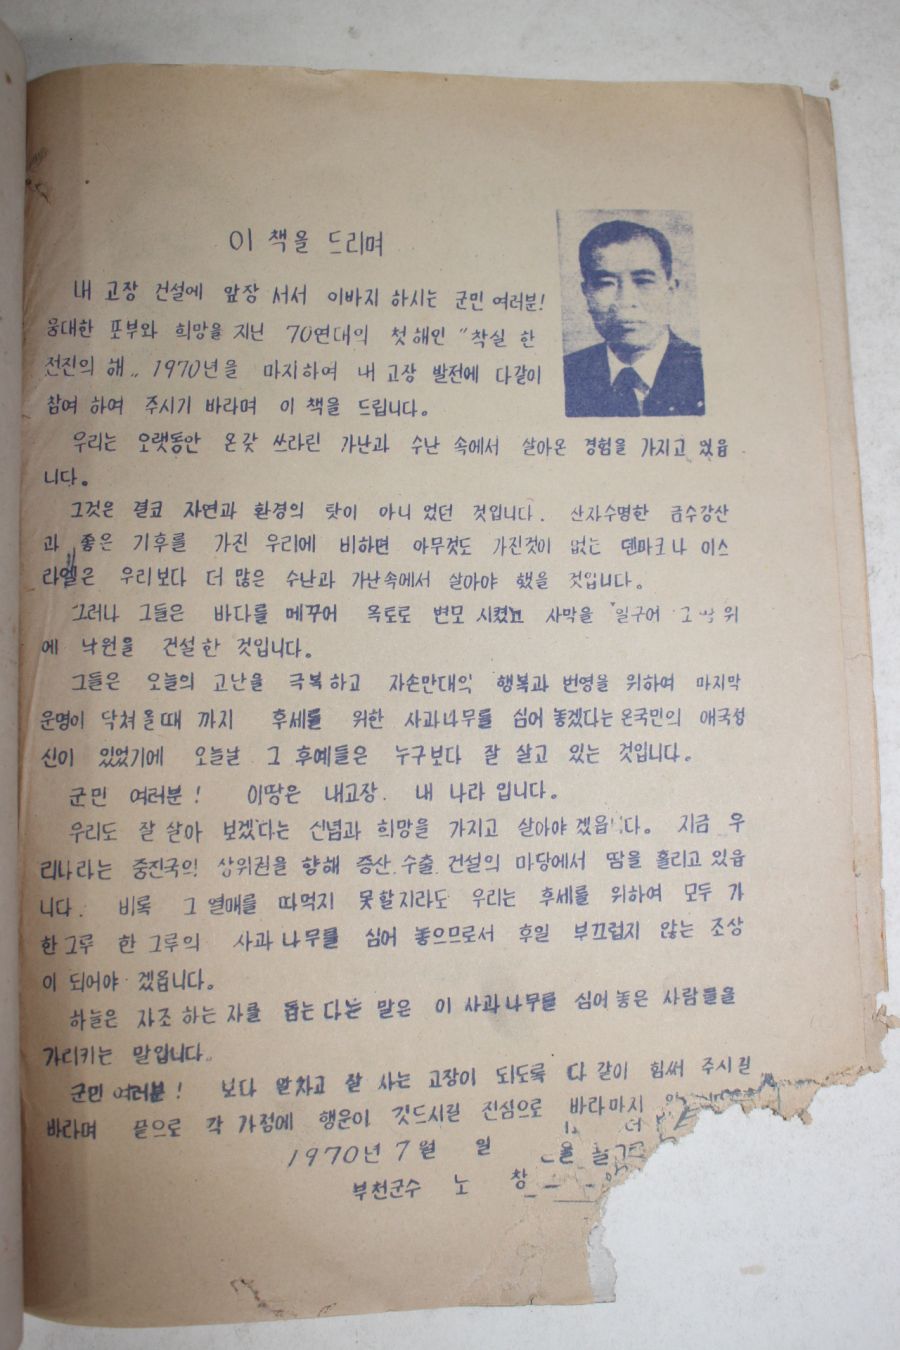 이 책을 드리며
내 고장 건설에 앞장 서서 이바지 하시는 군민 여러분!
웅대한 포부와 희망을 지닌 70연대의 첫 해인 "착실 한
전진의 해" 1970년을 마지하여 내 고장 발전에 다같이
참여 하여 주시기 바라며 이 책을 드립니다.
우리는 오랫동안 온갖 쓰라린 가난과 수난 속에서 살아온 경험을 가지고 있읍
니다.
그것은 결코 자연과 환경의 탓이 아니 었던 것입니다. 산자수명한 금수강산
과 좋은 기후를 가진 우리에 비하면 아무것도 가진것이 없는 덴마크나 이스
라엘은 우리보다 더 많은 수난과 가난속에서 살아야 했을 것입니다.
그러나 그들은 바다를 메꾸어 옥토로 변모 시켰고 사막을 일구어 그 위
에 낙원을 건설 한 것입니다.
그들은 오늘의 고난을 극복 하고 자손만대의 행복과 번영을 위하여 마지막
운명이 닥쳐 올때 까지 후세를 위한 사과나무를 심어 놓겠다는 온국민의 애국심
신이 있었기에 오늘날 그 후예들은 누구보다 잘 살고 있는 것입니다.
군민 여러분! 이땅은 내고장. 내 나라 입니다.
우리도 잘 살아 보겠다는 신념과 희망을 가지고 살아야 겠읍니다. 지금 우
리나라는 중진국의 상위권을 향해 증산. 수출. 건설의 마당에서 땀을 흘리고 있읍
니다. 비록 그 열매를 따먹지 못할지라도 우리는 후세를 위하여 모두 가
한그루 한 그루의 사과 나무를 심어 놓으므로서 후일 부끄럽지 않는 조상
이 되어야 겠읍니다.
하늘은 자조 하는 자를 돕는 다는 말은 이 사과나무를 심어 놓은 사람들을
가리키는 말입니다.
군민 여러분! 보다 알차고 잘 사는 고장이 되도록 다 같이 힘써 주시길
바라며 끝으로 각 가정에 행운이 깃드시길 진심으로 바라마지
1970년 7월 일
부천군수 노 창